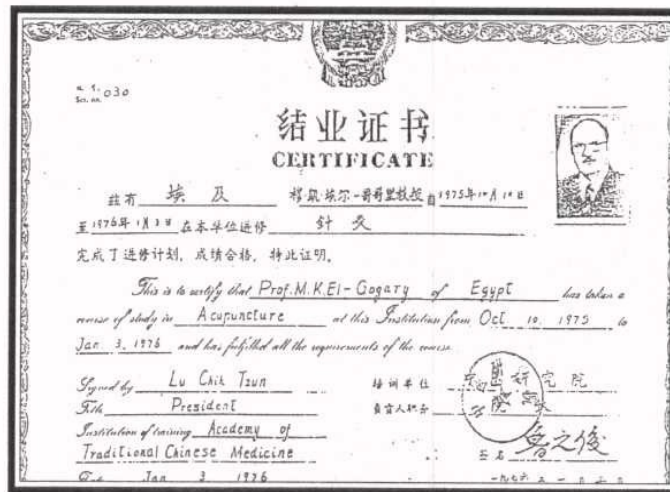 030
结业证书
CERTIFICATE
兹有 埃及 穆·凯·埃尔-哥哥里教授 自1975年10月10日
至1976年1月3日在本单位进修 针灸
完成了进修计划，成绩合格，特此证明。
This is to certify that Prof.M.K.El-Gogary of Egypt has taken a
course of study in Acupuncture at this Institution from Oct 10, 1975 to
Jan 3, 1976 and has fulfilled all the requirements of the course.
Signed by Lu Chih Tsun 培训单位 研究院
Title President 负责人职务 院长
Institution of training Academy of
Traditional Chinese Medicine 签名 鲁之俊
Jan 3 1976 一九七六年一月